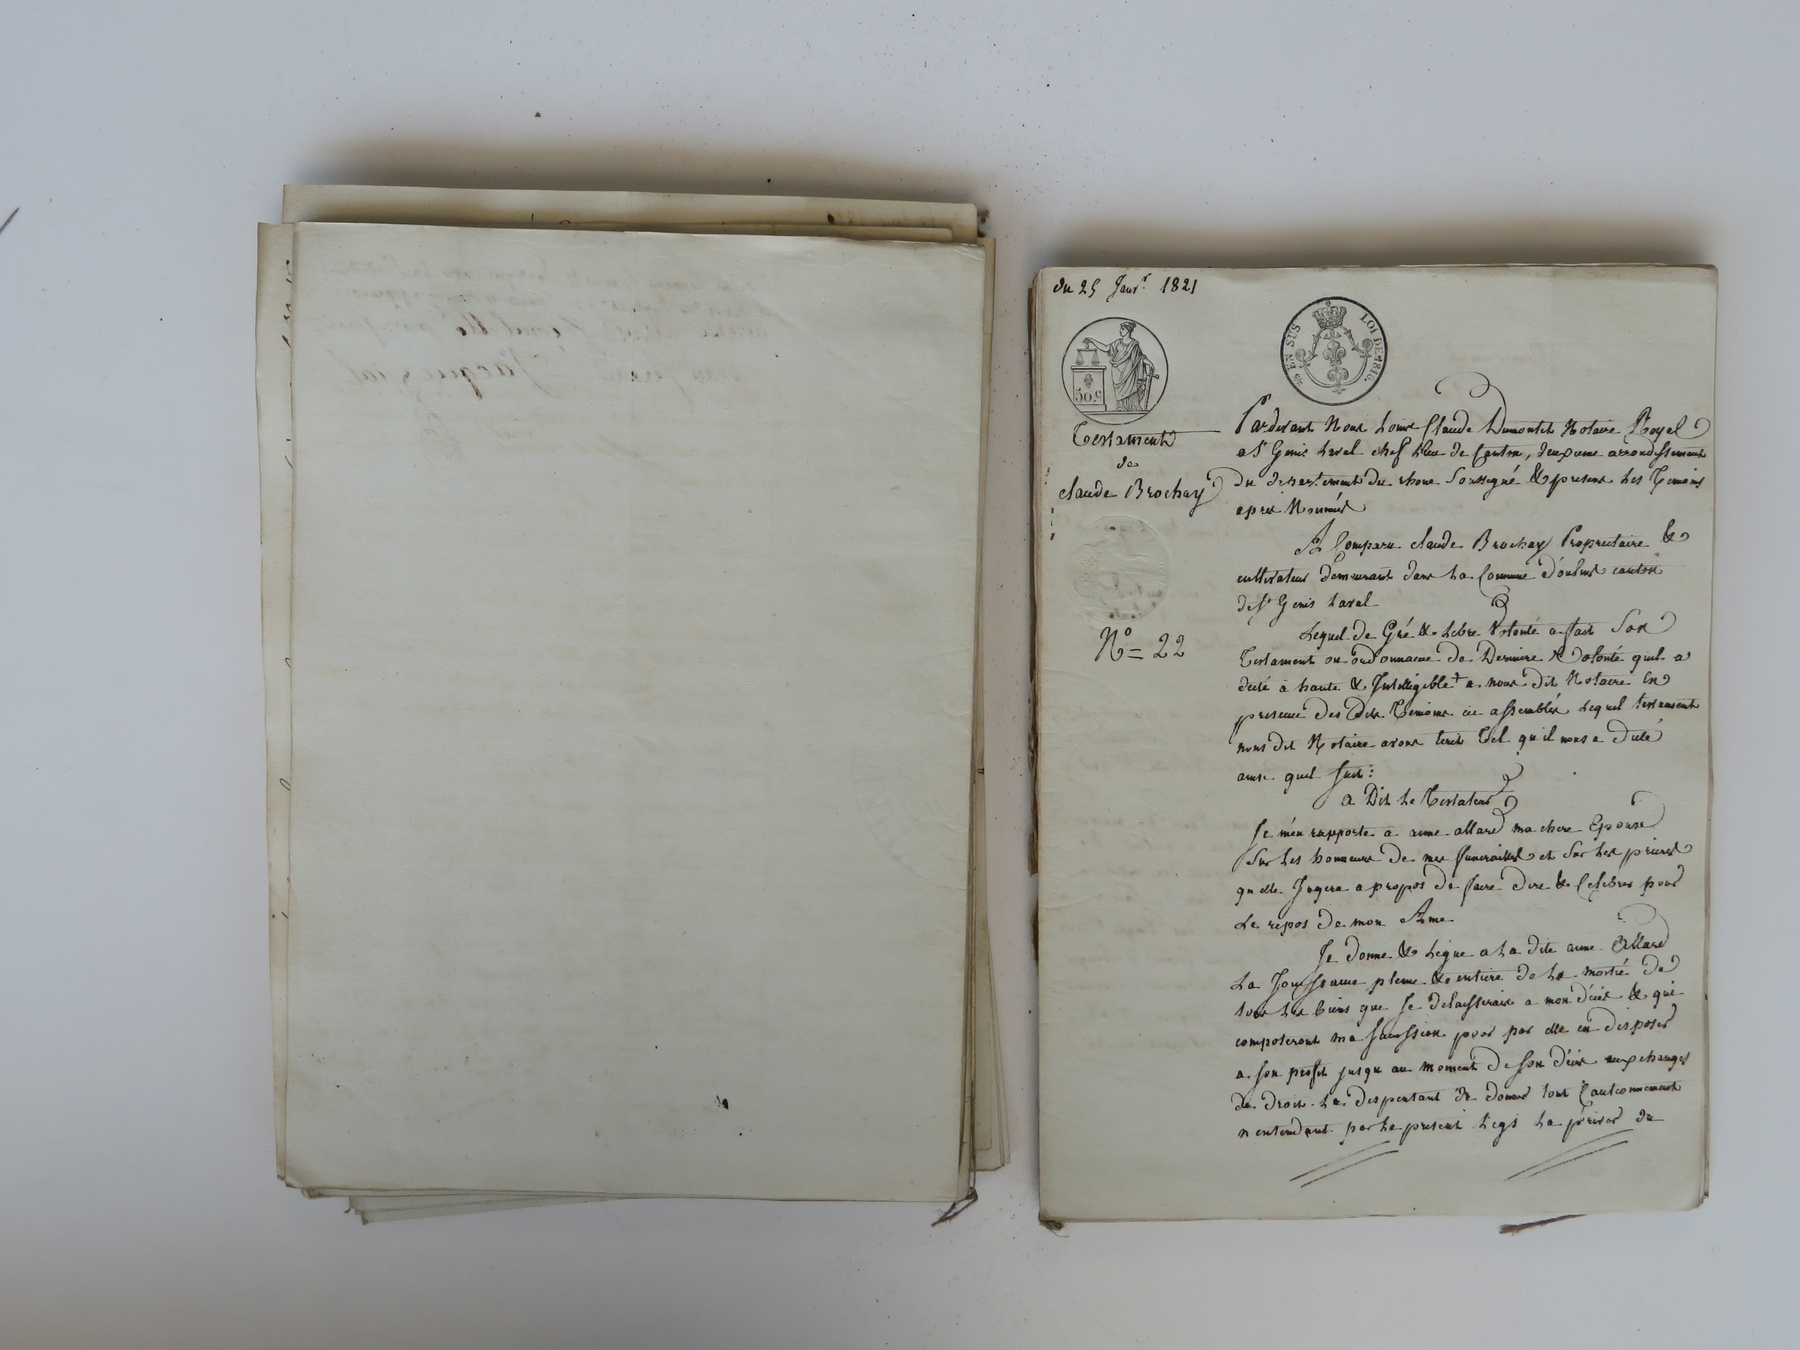 du 25 Janv.r 1821
50.c
EN SUS LOI DE 1816.
Testament
de
Claude Brochay
N.o = 22
Pardevant Nous Louis Claude Dumontet Notaire Royal
a St Genis Laval chef Lieu de Canton, deuxieme arrondissement
du departement du rhone Soussigné & presens Les Temoins
apres Nommés
A Comparu claude Brochay Proprietaire &
cultivateur demeurant dans La Commune d'oulins canton
de St Genis Laval
Lequel de Gré & Libre Volonté a fait Son
Testament ou ordonnance de Derniere Volonté quil a
dicté à haute & Intelligible + a nous dit Notaire En
presence des dits Temoins ici assemblés Lequel testament
nous dit Notaire avons Ecrit Tel qu'il nous a dicté
ainsi quil suit :
a Dit Le Testateur
Je m'en rapporte a anne allard ma chere Epouse
Sur Les honneurs de mes funerailles et Sur Les prieres
qu'elle Jugera a propos de faire dire & Celebrer pour
Le repos de mon Ame
Je donne & Legue a La dite anne Allard
La Jouissance pleine & entiere de La moitié de
tous Les biens que Je delaisserais a mon décès & qui
composeront ma Succession pour par elle en disposer
a son profit jusqu au moment de son décès aux charges
de droit La dispensant de donner tout Cautionnement
n entendant par Le present Legs La priver du